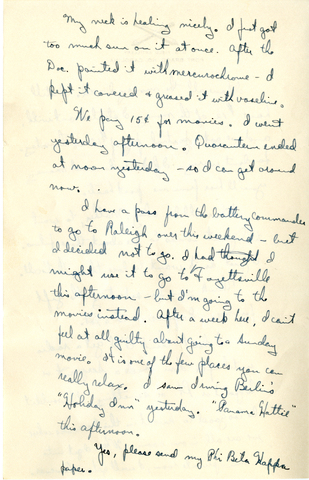 My neck is healing nicely. I just got
too much sun on it at once. After the
Doc. painted it with mercurochrome - I
kept it covered & greased it with vaseline.
We pay 15¢ for movies. I went
yesterday afternoon. Quarantern ended
at noon yesterday - so I can get around
now.
I have a pass from the battery commander
to go to Raleigh over this weekend - but
I decided not to go. I had thought I
might use it to go to Fayetteville
this afternoon - but I'm going to the
movies instead. After a week here, I can't
feel at all guilty about going to a Sunday
movie. It is one of the few places you can
really relax. I saw Irving Berlin's
"Holiday Inn" yesterday. "Panama Hattie"
this afternoon.
Yes, please send my Phi Beta Kappa
paper.